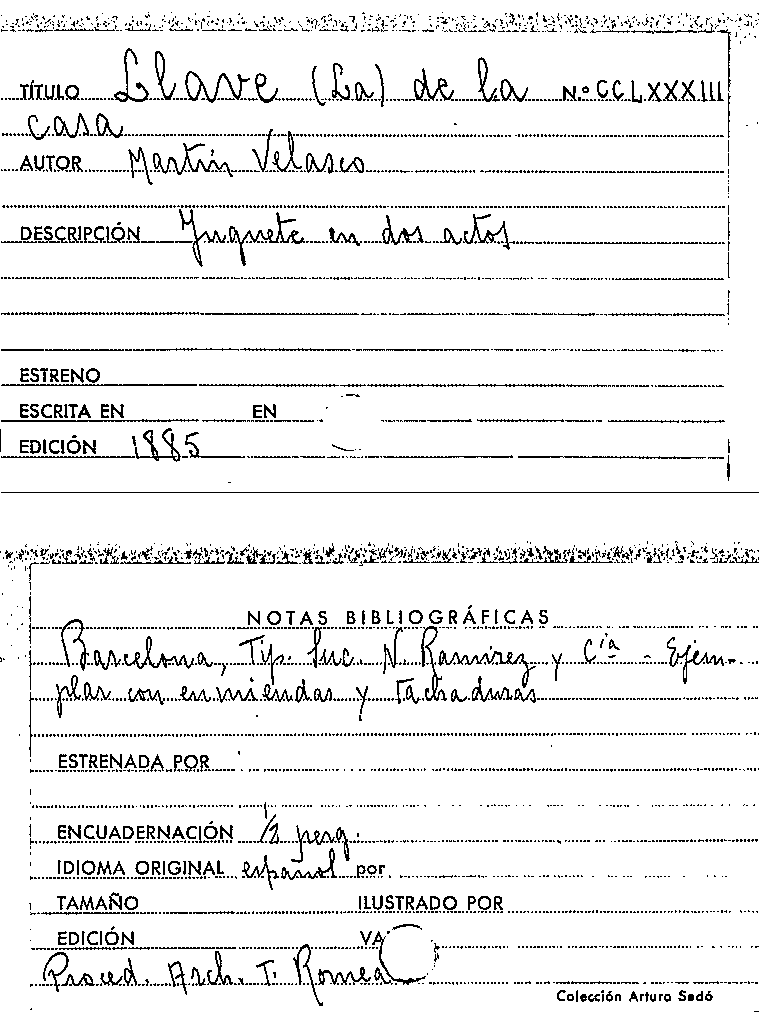 TÍTULO Llave (La) de la Nº CCLXXXIII
casa
AUTOR Martín Velasco
DESCRIPCIÓN Juguete en dos actos
ESTRENO
ESCRITA EN EN
EDICIÓN 1885
NOTAS BIBLIOGRÁFICAS
Barcelona, Tip. Suc. N. Ramirez y Cía - Ejem-
plar con enmiendas y tachaduras
ESTRENADA POR
ENCUADERNACIÓN 1/2 perg.
IDIOMA ORIGINAL español por
TAMAÑO ILUSTRADO POR
EDICIÓN VA
Proced. Arch. T. Romea
Colección Arturo Sedó